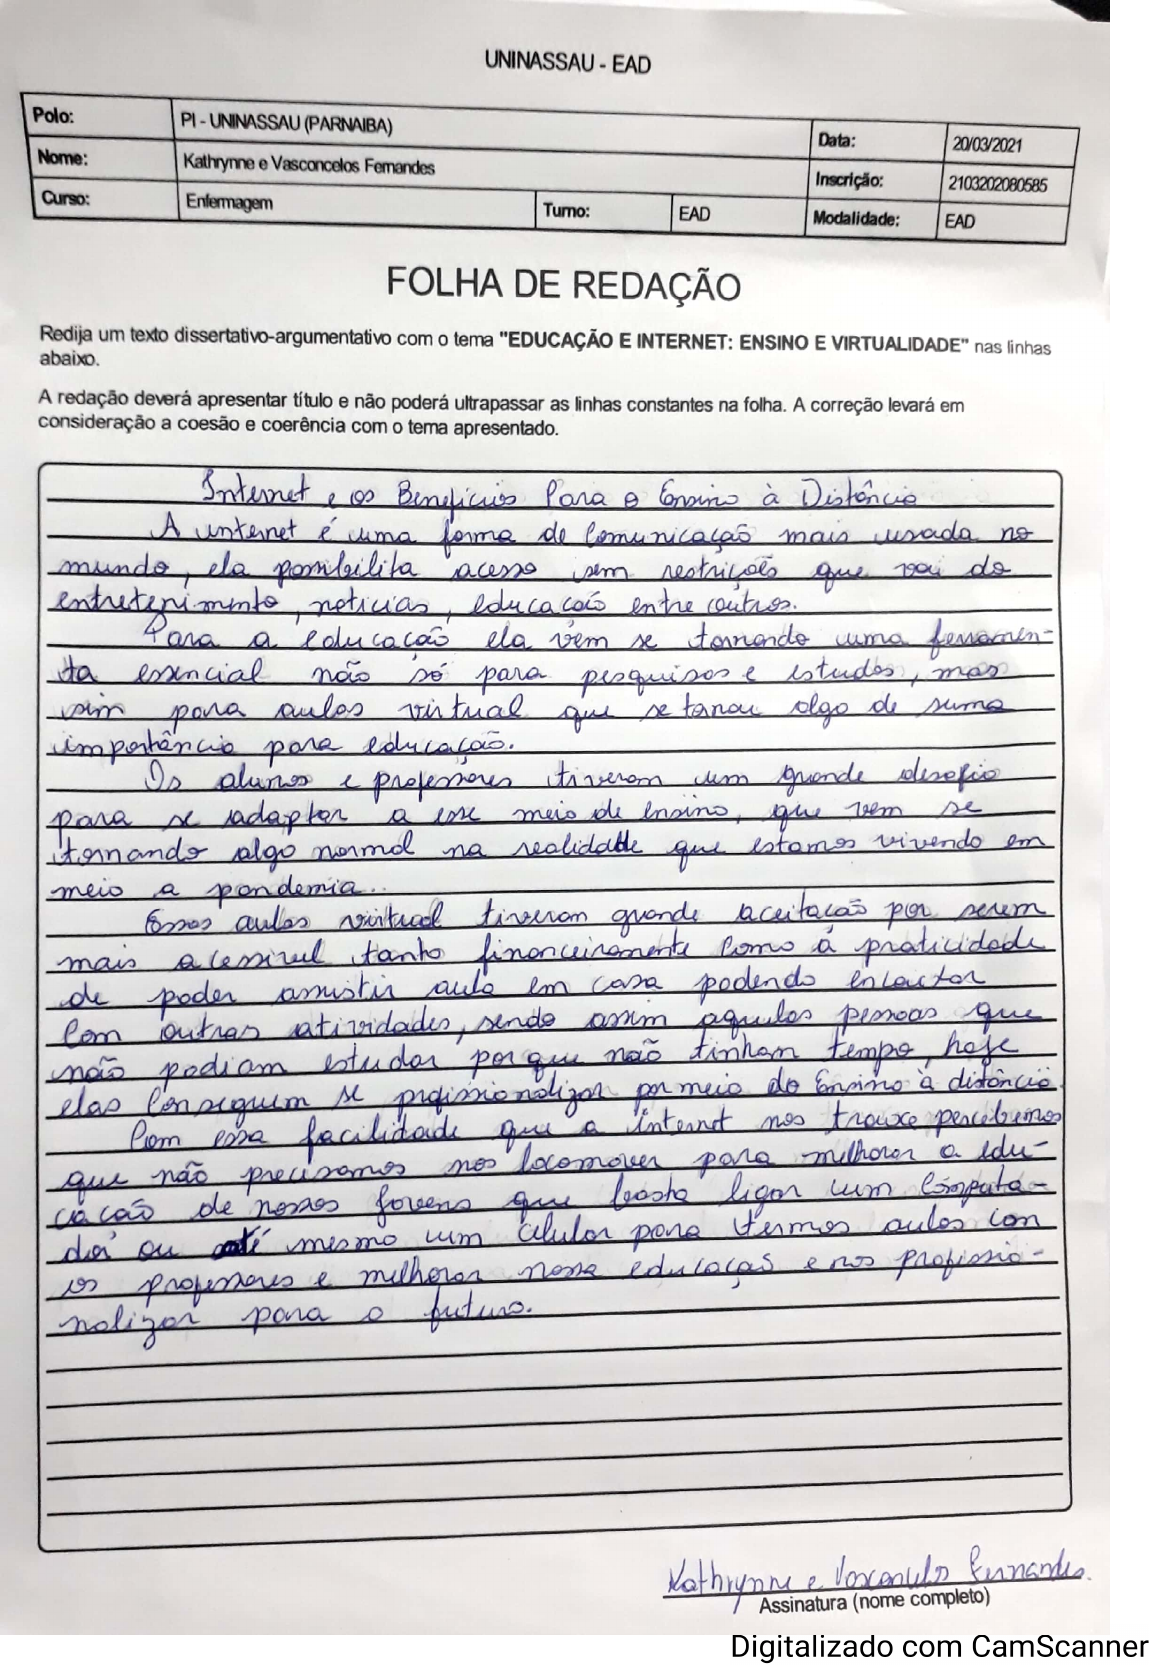 UNINASSAU - EAD
Polo: PI - UNINASSAU (PARNAIBA) Data: 20/03/2021
Nome: Kathrynne e Vasconcelos Fernandes Inscrição: 2103202080585
Curso: Enfermagem Turno: EAD Modalidade: EAD
FOLHA DE REDAÇÃO
Redija um texto dissertativo-argumentativo com o tema "EDUCAÇÃO E INTERNET: ENSINO E VIRTUALIDADE" nas linhas
abaixo.
A redação deverá apresentar título e não poderá ultrapassar as linhas constantes na folha. A correção levará em
consideração a coesão e coerência com o tema apresentado.
Internet e os Benefícios Para o Ensino à Distância
A internet é uma forma de Comunicação mais usada no
mundo, ela possibilita acesso sem restrições que vai do
entretenimento, notícias, educação entre outros.
Para a educação ela vem se tornando uma ferramen-
ta essencial não só para pesquisas e estudos, mas
sim para aulas virtual que se tornou algo de suma
importância para educação.
Os alunos e professores tiveram um grande desafio
para se adaptar a esse meio de ensino, que vem se
tornando algo normal na realidade que estamos vivendo em
meio a pandemia.
Essas aulas virtual tiveram grande aceitação por serem
mais acessivel tanto financeiramente Como á praticidade
de poder assistir aula em casa podendo encaixar
Com outras atividades, sendo assim aquelas pessoas que
não podiam estudar porque não tinham tempo, hoje
elas Conseguem se profissionalizar por meio do Ensino à distância.
Com essa facilidade que a internet nos trouxe percebemos
que não precisamos nos locomover para melhorar a edu-
cação de nossos jovens que basta ligar um Computa-
dor ou até mesmo um Celular para termos aulas con
os professores e melhorar nossa educação e nos profissio-
nalizar para o futuro.
Kathrynne e Vasconcelos Fernandes.
Assinatura (nome completo)
Digitalizado com CamScanner